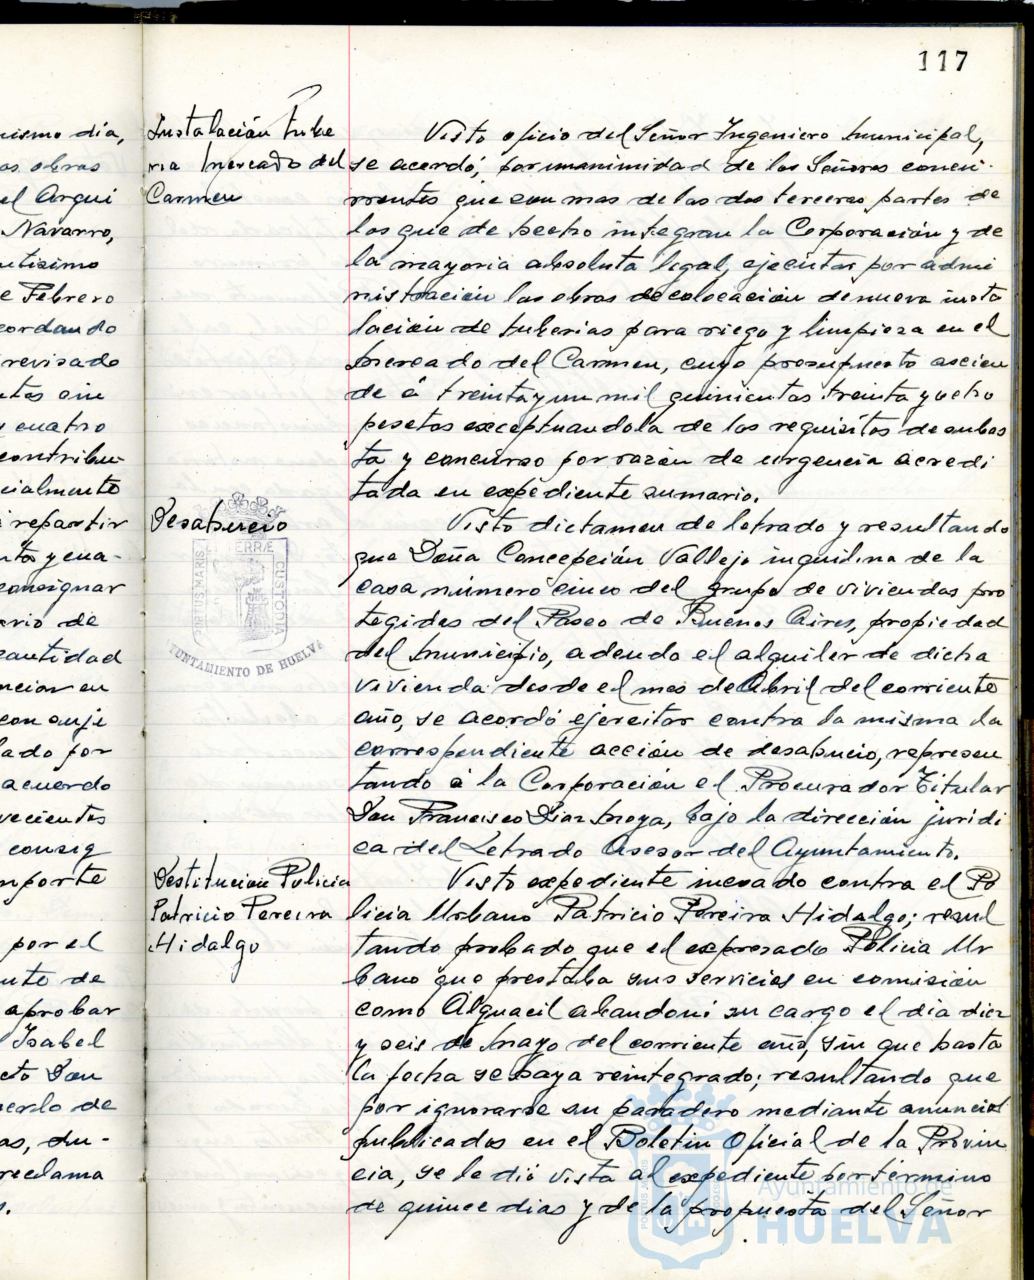 117
nismo dia,
as obras
el Arqui
Navarro,
ntisimo
e Febrero
cordando
revisado
y cuatro
contribu-
cialmente
repartir
consignar
ario de
cantidad
lado por
acuerdo
vecientos
consig
mporte
por el
nte de
aprobar
Isabel
cto Don
erlo de
as, du-
reclama
Instalación tube
ria Mercado del
Carmen
Desahucio
Destitución Policia
Patricio Pereira
Hidalgo
PORTUS MARIS
ET TERRÆ
CUSTODIA
AYUNTAMIENTO DE HUELVA
Visto oficio del Señor Ingeniero Municipal,
se acordó, por unanimidad de los Señores concu-
rrentes que son mas de las dos terceras partes de
los que de hecho integran la Corporación y de
la mayoria absoluta legal, ejecutar por admi
nistración las obras de colocación de nueva insta
lación de tuberias para riego y limpieza en el
Mercado del Carmen, cuyo presupuesto ascien
de á treinta y un mil quinientas treinta y ocho
pesetas exceptuandola de los requisitos de subas
ta y concurso por razón de urgencia acredi
tada en expediente sumario.
Visto dictamen de letrado y resultando
que Doña Concepción Vallejo inquilina de la
casa número cinco del grupo de viviendas pro
tegidas del Paseo de Buenos Aires, propiedad
del Municipio, adeuda el alquiler de dicha
vivienda desde el mes de Abril del corriente
año, se acordó ejercitar contra la misma la
correspondiente acción de desahucio, represen
tando á la Corporación el Procurador Titular
Don Francisco Diaz Moya, bajo la dirección juridi
ca del Letrado Asesor del Ayuntamiento.
Visto expediente incoado contra el Po
licia Urbano Patricio Pereira Hidalgo; resul
tando probado que el expresado Policia Ur
bano que prestaba sus servicios en comisión
como Alguacil abandonó su cargo el dia diez
y seis de Mayo del corriente año, sin que hasta
la fecha se haya reintegrado; resultando que
por ignorarse su paradero mediante anuncios
publicados en el Boletin Oficial de la Provin
cia, se le dió vista al expediente por término
de quince dias y de la propuesta del Señor
Ayuntamiento de
HUELVA